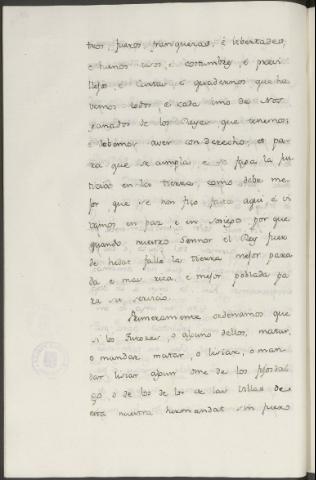 tros, fueros, franquezas, é libertades,
e buenos usos, e costumbres, e previ
llejos, e Cartas, e quadernos que ha
bemos todos, e cada uno de Nos
ganados de los Reyes que tenemos,
e debemos aver con derecho, et pa
ra que se cumpla e se faga la jus
ticia en la tierra, como debe me
jor que se non fizo fasta aqui é vi
vamos en paz e en sosiego por que
quando nuestro Sennor el Rey fuere
de hedat falle la tierra mejor para
da e mas rica, e mejor poblada pa
ra su servicio.
Primeramente ordenamos que
si los Juezes o alguno dellos, matar,
o mandar matar, o lisiar, o man
dar lisiar algun ome de los fijosdal
go, o de los de las villas de
esta nuestra hermandat sin fuero